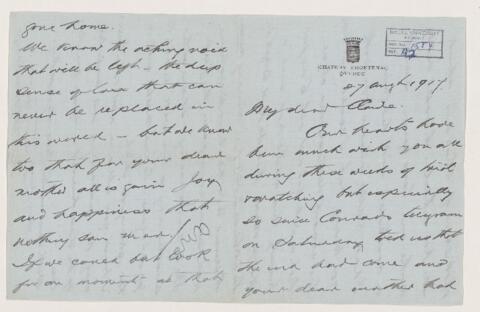 CHATEAU FRONTENAC
QUEBEC
27 Augt. 1917.
My dear Clare.
Our hearts have
been much with you all
during these weeks of
watching but especially
so since Conrad's telegram
on Saturday told us that
the end had come and
your dear mother had
gone home.
We know the aching void
that will be left - the deep
sense of loss that can
never be replaced in
this world - but we know
too that for your dear
mother all is gain Joy
and happiness that
nothing can mar.
If we could but look
for one moment at that